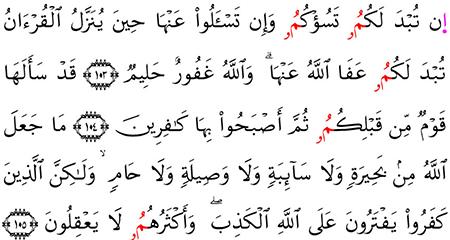 إِن تُبْدَ لَكُمُۥ تَسُؤْكُمُۥ وَإِن تَسْـَٔلُوا۟ عَنْهَا حِينَ يُنَزَّلُ ٱلْقُرْءَانُ
تُبْدَ لَكُمُۥ عَفَا ٱللَّهُ عَنْهَا ۗ وَٱللَّهُ غَفُورٌ حَلِيمٌ ۝١٠٣ قَدْ سَأَلَهَا
قَوْمٌ مِّن قَبْلِكُمُۥ ثُمَّ أَصْبَحُوا۟ بِهَا كَـٰفِرِينَ ۝١٠٤ مَا جَعَلَ
ٱللَّهُ مِنۢ بَحِيرَةٍ وَلَا سَآئِبَةٍ وَلَا وَصِيلَةٍ وَلَا حَامٍ ۙ وَلَـٰكِنَّ ٱلَّذِينَ
كَفَرُوا۟ يَفْتَرُونَ عَلَى ٱللَّهِ ٱلْكَذِبَ ۖ وَأَكْثَرُهُمُۥ لَا يَعْقِلُونَ ۝١٠٥